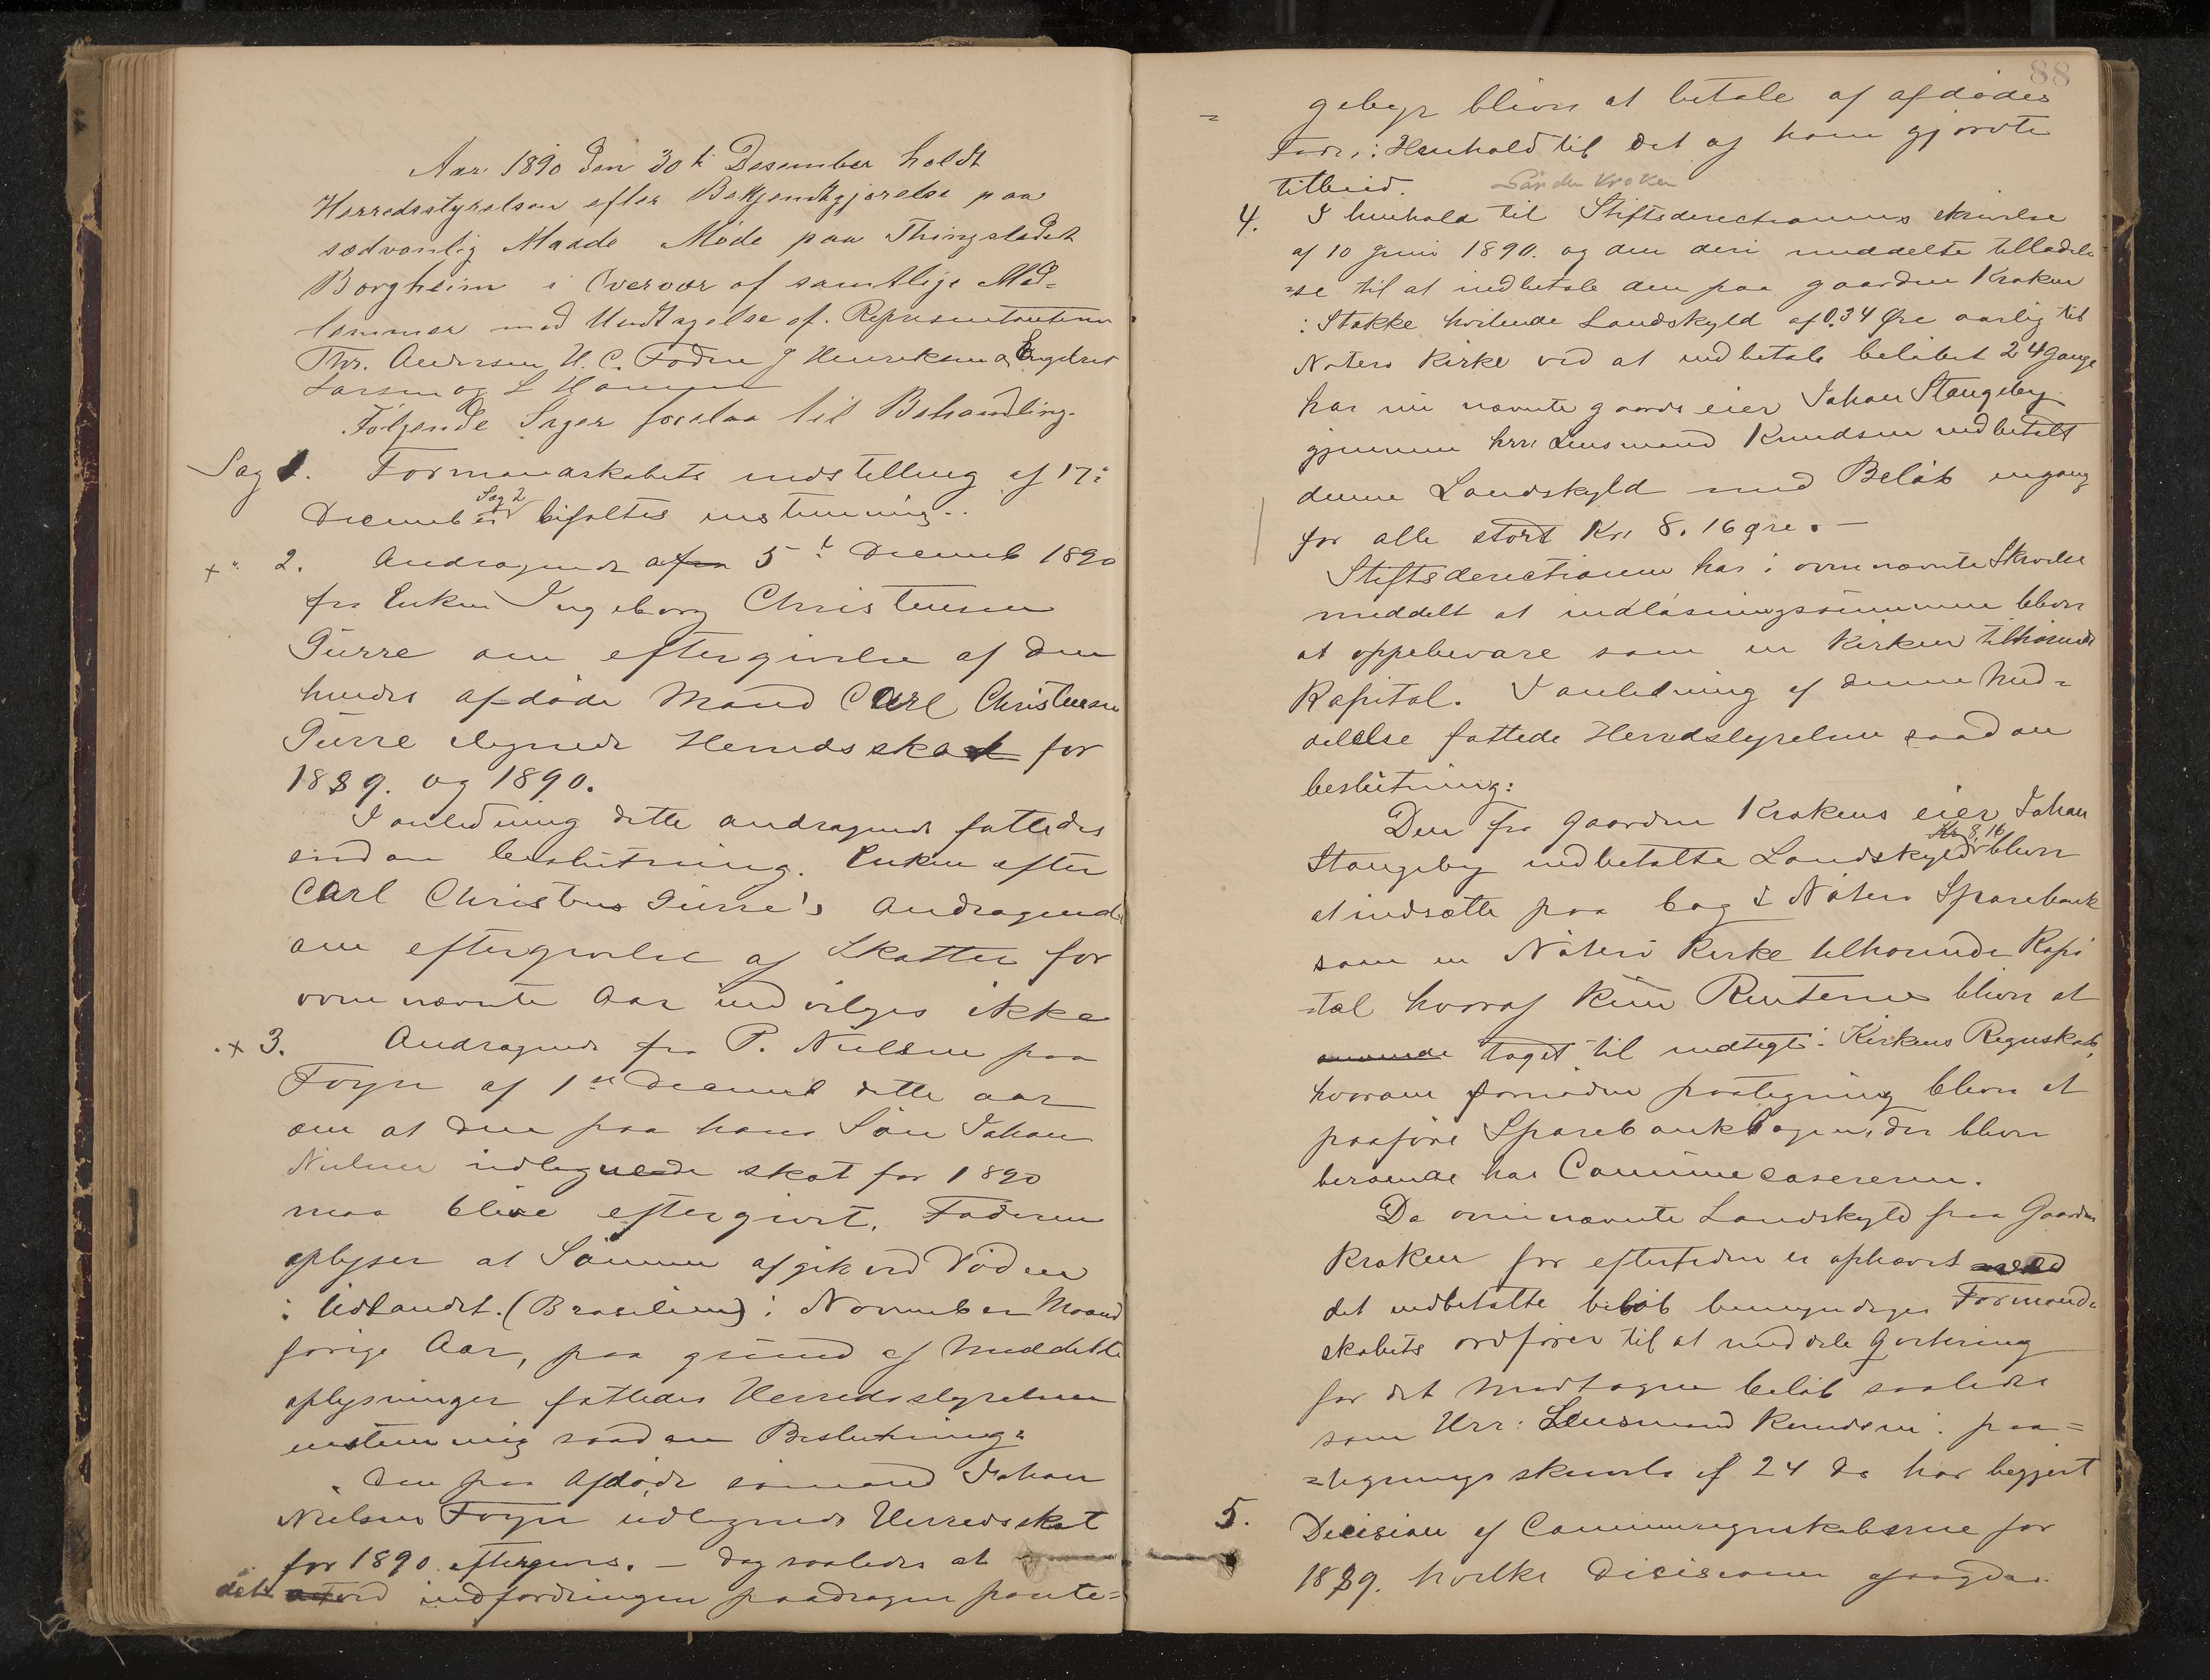 Aar 1890 den 30te Desember holdt
Herredsstyrelsen efter Bekjendtgjørelse paa
sædvanlig Maade Møde paa Thingstedet
Borgheim i Overvær af samtlige Med=
lemmer med Undtagelse af Representanterne
Thr. Andersen H. C. Foden J Henriksen og Engebret
Larsen og L Hansen
Følgende Sager forelaa til Behandling.
Sag 1. Formanskabets indstilling af 17:
December Sag 2 bifaltes enstemmig..
x " 2. Andragende af fra 5t Decemb 1890
fra Enken Ingeborg Christensen
Gurre om eftergivelse af den
hendes afdøde Mand Carl Christensen
Gurre ilignede Herredsskat for
1889. og 1890.
I anledning dette andragende fattedes
sådan beslutning. Enken efter
Carl Christens Gurre's Andragende
om eftergivelse af Skatten for
ovennævnte Aar indvilges ikke
x 3. Andragende fra P. Nielsen paa
Foyn af 1ste Decemb dette aar
om at den paa hans Søn Johan
Nielsen udlignede skat for 1890
maa blive eftergivet. Faderen
oplyser at Sønnen afgik ved Døden
i Udlandet. (Brasilien) i November Maaned
forige Aar, paa grund af Meddelte
oplysninger fattedes Herredsstyrelsen
enstemmig saadan Beslutning:
Den paa Afdøde sømand Johan
Nielsen Foyn udlignede Herredsskat
for 1890 eftergives. — dog saaledes at
det ved indfordringen paadragne pante=
88
gebyr bliver at betale af afdødes
Fader i Henhold til det af ham gjordte
tilbud. Søndre Kroken
4. I henhold til Stiftsderectionens skrivelse
af 10 Juni 1890. og den deri meddelte tilladel
=se til at indbetale den paa gaarden Kroken
i Stokke hvilende Landskyld af 0.34 Øre aarlig til
Nøterø Kirke ved at indbetale beløbet 24 Gange
har nu nævnte gaards eier Johan Stangeby
gjennem herr Lensmand Knudsen indbetalt
denne Landskyld med Beløb engang
for alle stort Kr. 8.16 øre. —
Stiftsderectionen har i ovennævnte Skrivelse
meddelt at indløsningssummen bliver
at oppebevare som en Kirken tilhørende
Kapital. I anledning af denne Med=
delelse fattede Herredstyrelsen saadan
beslutning:
Den fra gaarden Krokens eier Johan
Stangeby indbetalte Landskyld Kr 8,16 bliver
at indsætte paa bog i Nøterø Sparebank
som en Nøterø Kirke tilhørende Kapi
=tal hvoraf kun Renterne bliver at
taget til indtegt i Kirkens Regnskab,
hvorom fornøden paategning bliver at
paaføre Sparebankbogen, der bliver
beroende hos Communecasereren.
Da ovennævnte Landskyld fraa Gaarden
Kroken for eftertiden er ophævet ved
det indbetalte beløb bemyndiges Formand=
skabets ordfører til at meddele Qvitering
for det Modtagne beløb saaledes
som Herr: Lensmand Knudsen i paa=
=tegningsskrivelse af 24 ds har begjert
5. Decision af Communeregnskaberne for
1889. hvilke Decisioner afsagdes.